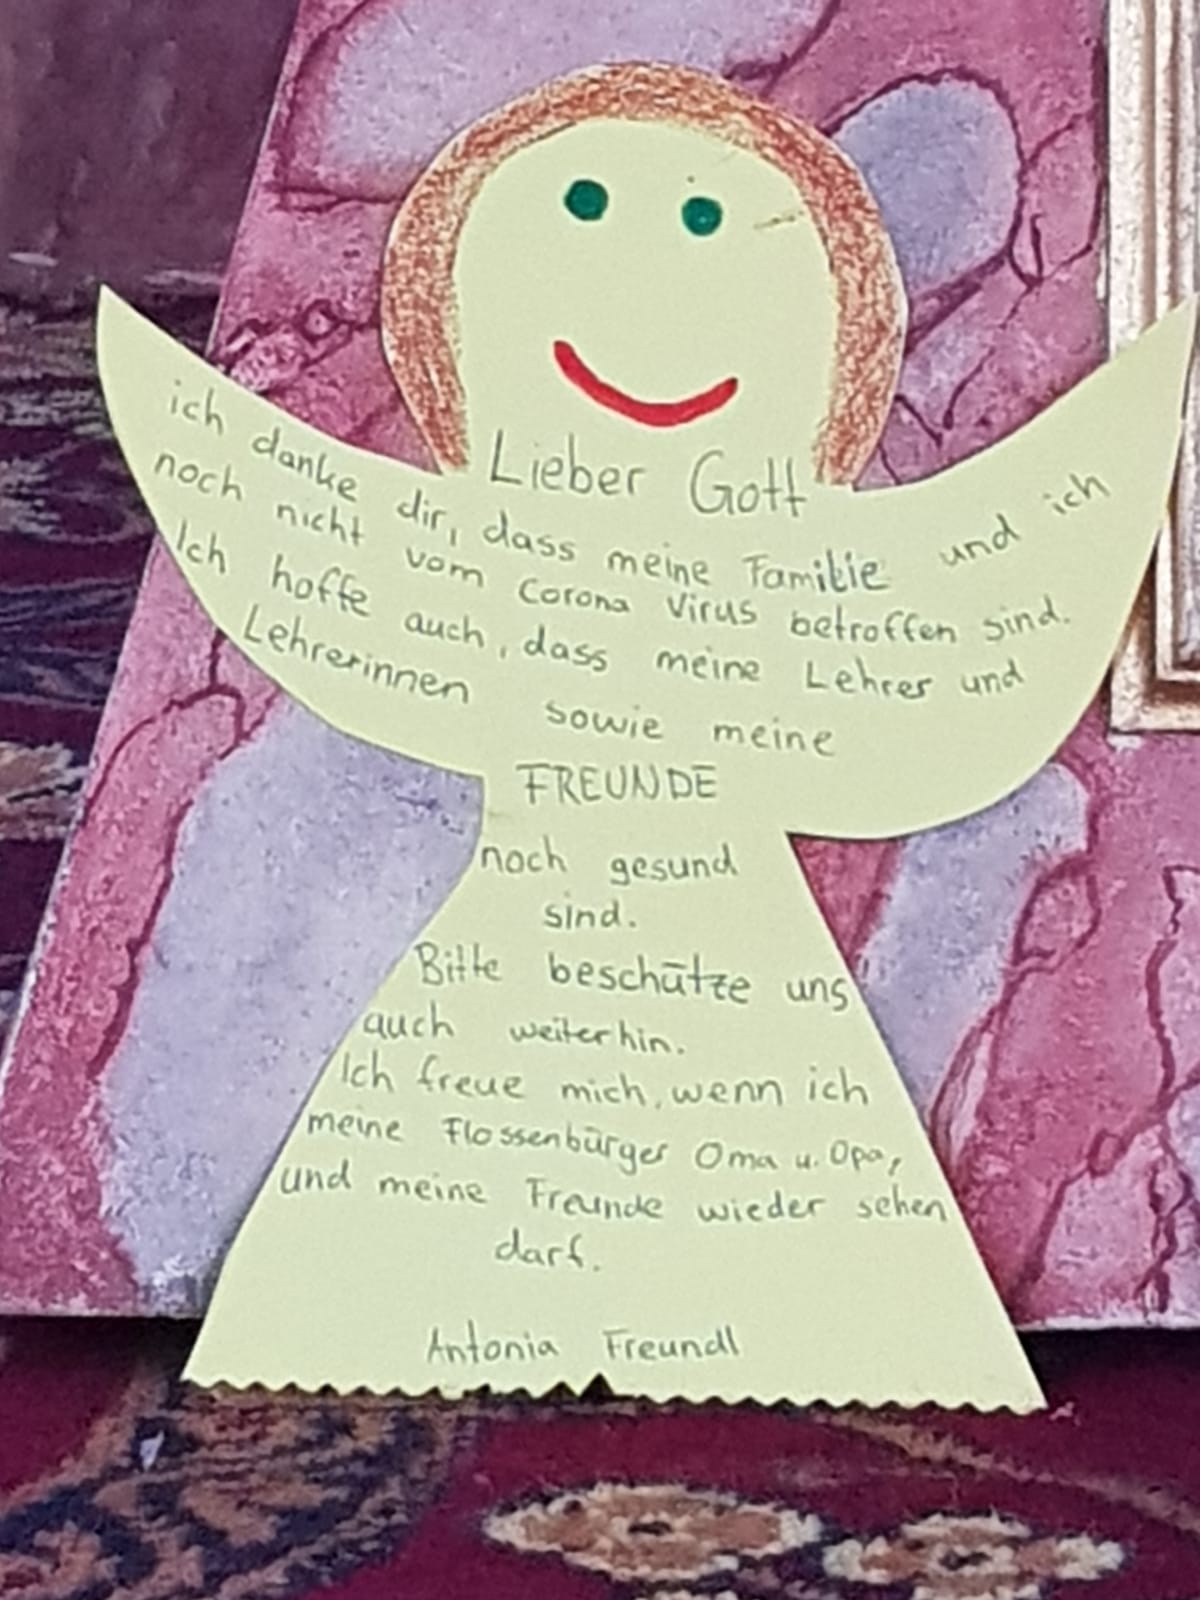 Lieber Gott
ich danke dir, dass meine Familie und ich
noch nicht vom Corona Virus betroffen sind.
Ich hoffe auch, dass meine Lehrer und
Lehrerinnen sowie meine
FREUNDE
noch gesund
sind.
Bitte beschütze uns
auch weiterhin.
Ich freue mich, wenn ich
meine Flossenbürger Oma u. Opa,
und meine Freunde wieder sehen
darf.
Antonia Freundl